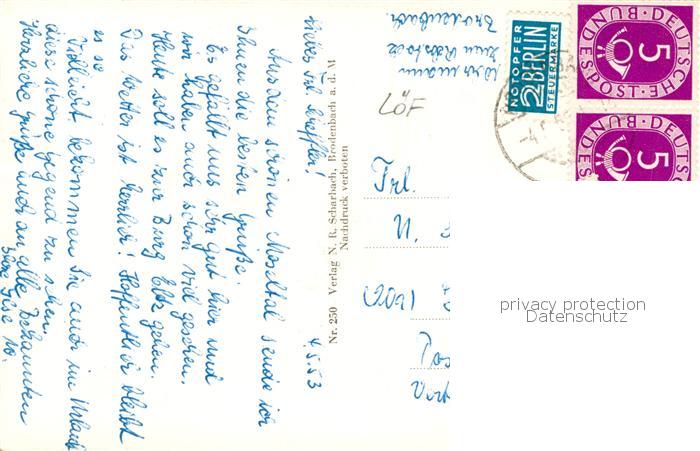 4.5.53
Liebes Frl. 
Aus dem schönen Moseltal sende ich
Ihnen die besten Grüße.
Es gefällt uns sehr gut hier und
wir haben auch schon viel gesehen.
Heute soll es zur Burg Eltz gehen.
Das Wetter ist herrlich! Hoffentlich bleibt
es so
Vielleicht bekommen Sie auch im Urlaub
diese schöne Gegend zu sehen.
Herzliche Grüße auch an alle Bekannten
Gise W.
Nr. 250 Verlag N. R. Scharbach, Brodenbach a. d. M
Nachdruck verboten
zum
Brodenbach.
LÖF
NOTOPFER
2 BERLIN
STEUERMARKE
DEUTSCHE BUNDESPOST
5
DEUTSCHE BUNDESPOST
5
Frl.
privacy protection
Datenschutz